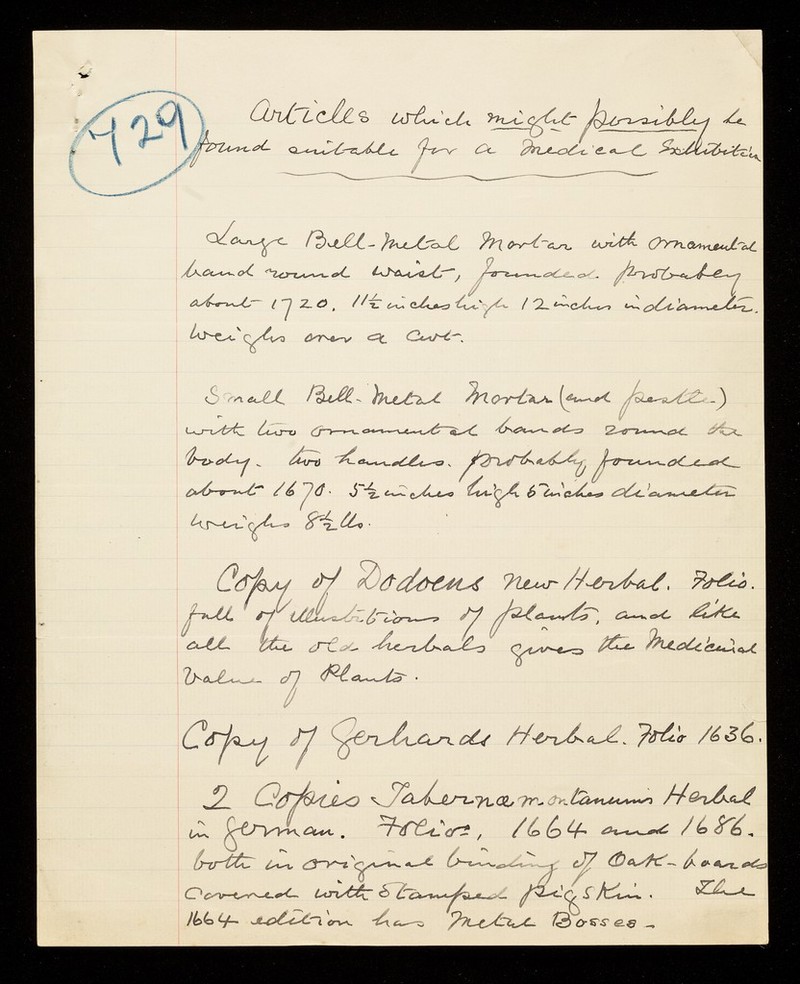 729
Articles which might possibly be
found suitable for a Medical Exhibition
Large Bell-Metal Mortar with ornamental
band round waist, founded. probabley
about 1720. 11½ inches high 12 inches in diameter.
Weighs over a cwt.
Small Bell-Metal Mortar (and pestle-)
with two ornamental bands round the
body. two handles. probably founded
about 1670. 5½ inches high 5 inches diameter
weighs 8½ lbs.
Copy of Dodoens New Herbal. Folio.
full of illustrations of plants, and like
all the old herbals gives the Medicinal
Value of Plants.
Copy of Gerhards Herbal. Folio 1636.
2 Copies Tabernæmontanums Herbal
in German. Folios, 1664 and 1686.
both in original binding of Oak-boards
Covered with Stamped pigskin. The
1664 edition has Metal Bosses-